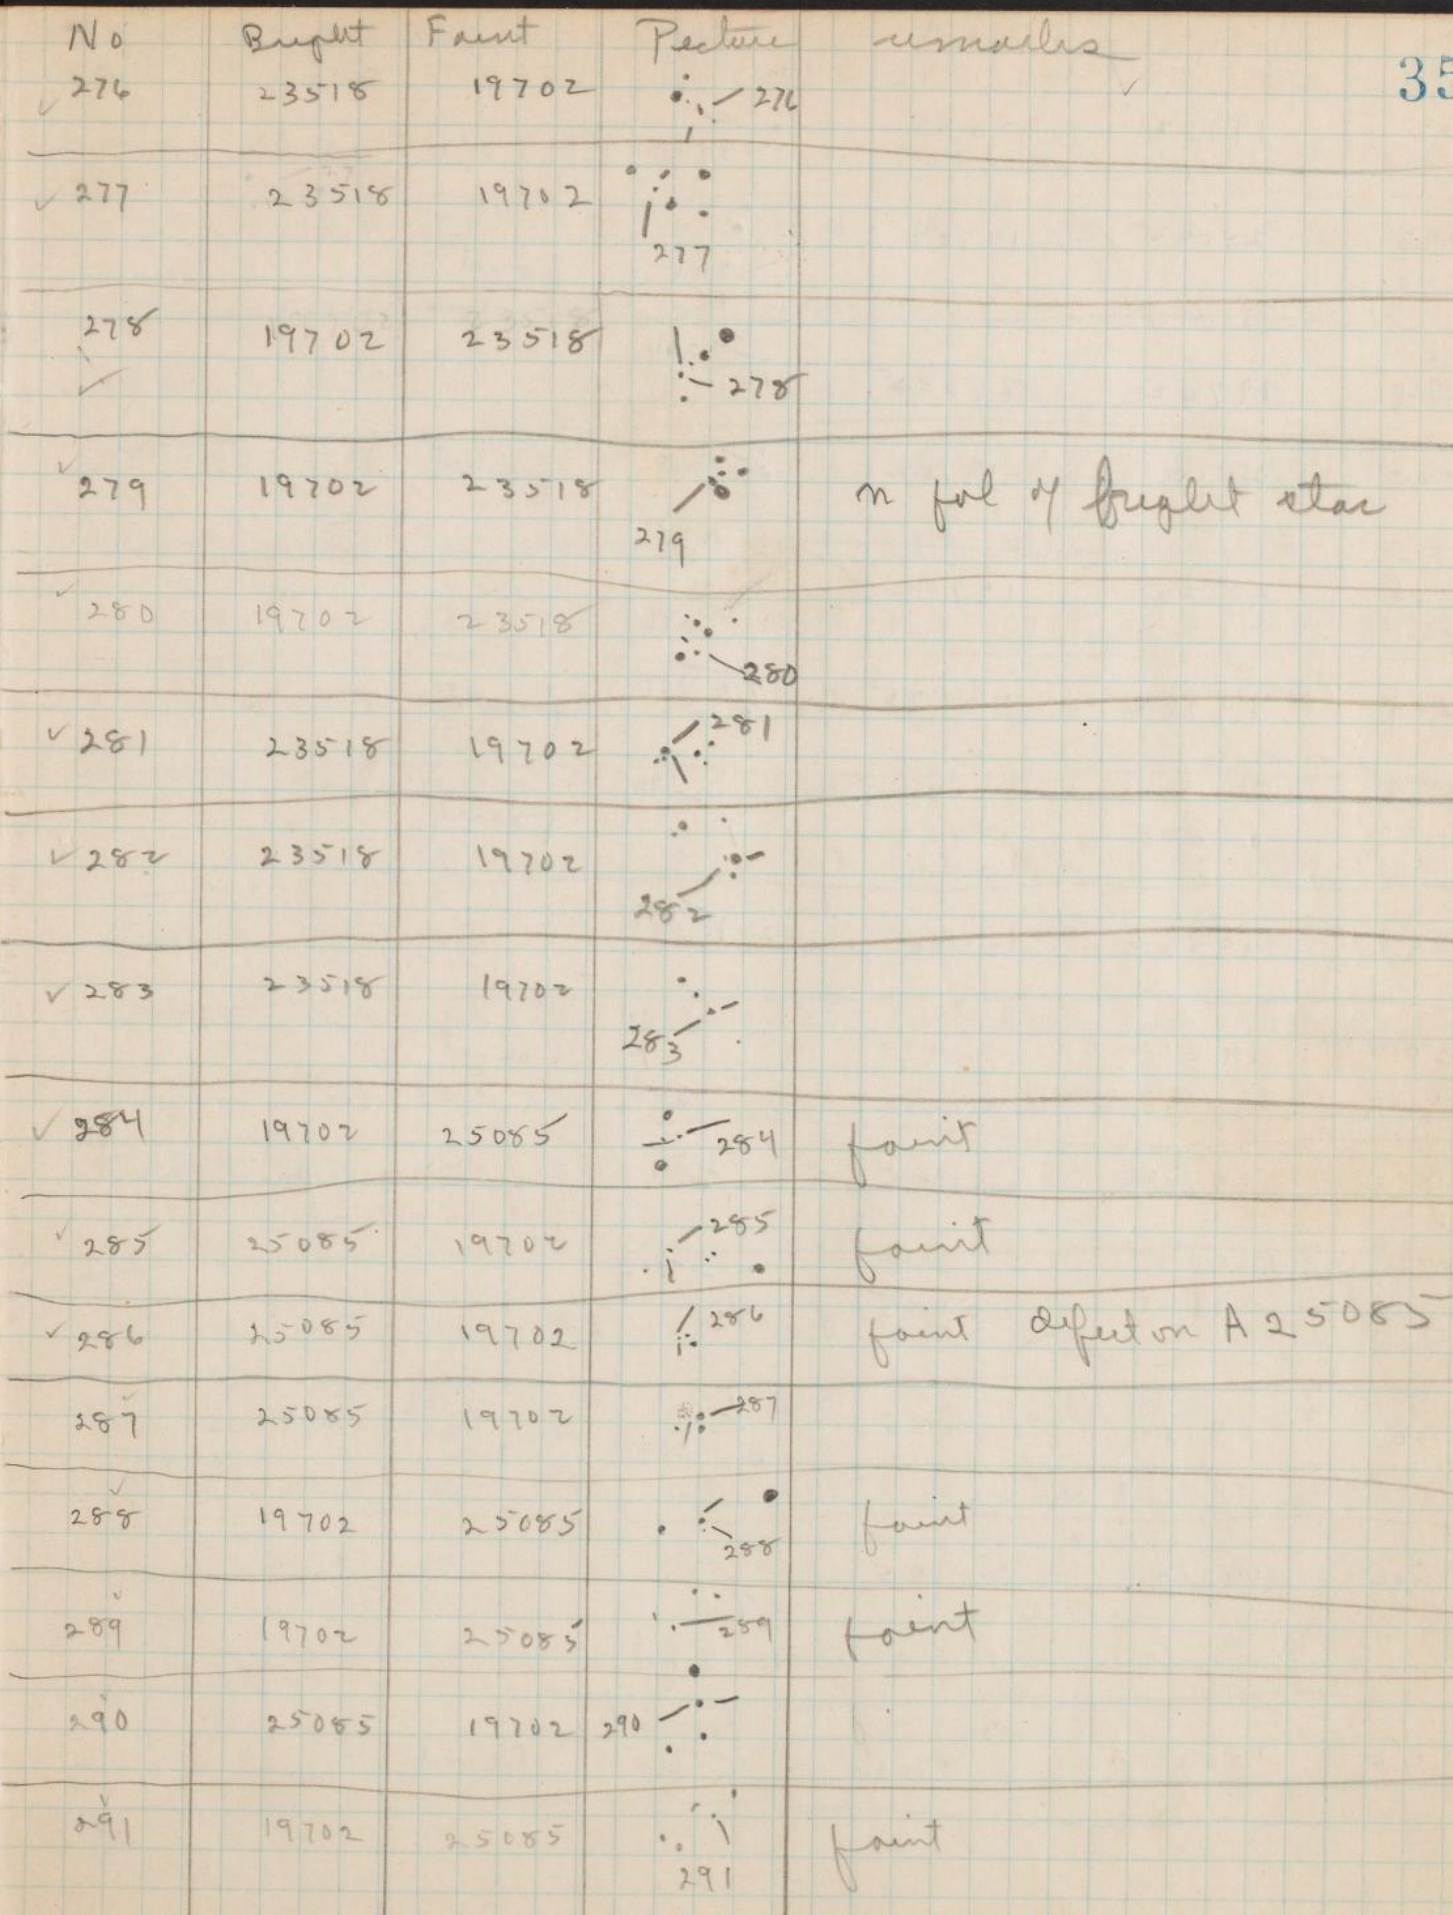 No Bright Faint Picture remarks
35
276 23518 19702 276
277 23518 19702
277
278 19702 23518
278
279 19702 23518 n fol of bright star
279
280 19702 23518
280
281 23518 19702 281
282 23518 19702
282
283 23518 19702
283
284 19702 25085 284 faint
285 25085 19702 285 faint
286 25085 19702 286 faint defect on A 25085
287 25085 19702 287
288 19702 25085 faint
288
289 19702 25085 289 faint
290 25085 19702 290
291 19702 25085 faint
291